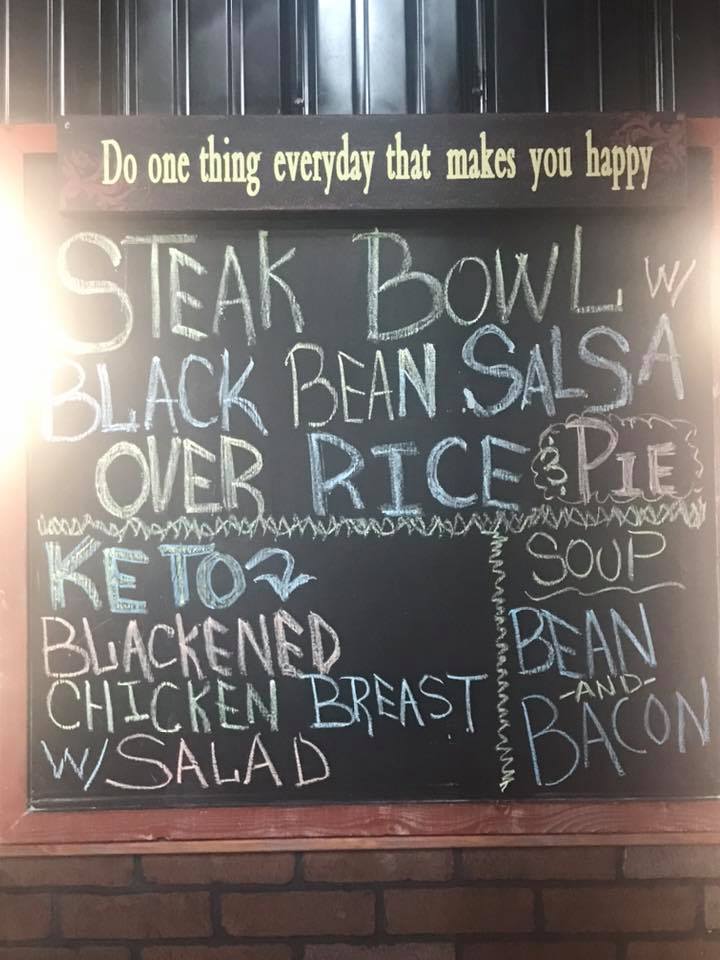 Do one thing everyday that makes you happy
STEAK BOWL W/
BLACK BEAN SALSA
OVER RICE & PIE
KETO
BLACKENED
CHICKEN BREAST
W/ SALAD
SOUP
BEAN
-AND-
BACON